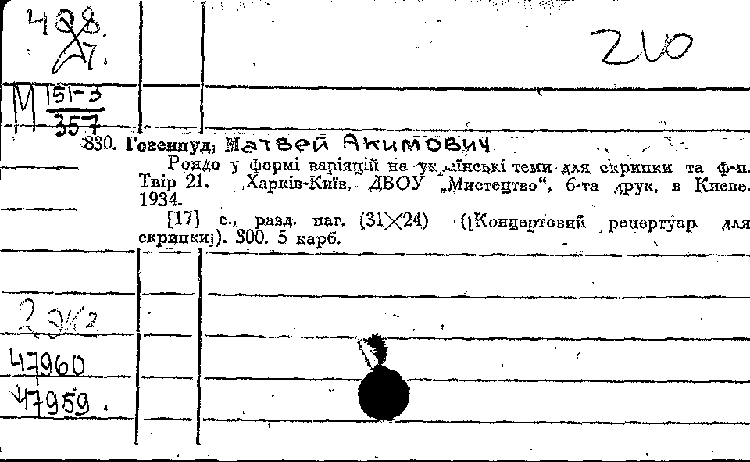 210
М 151-3
357
830. Гозенпуд, Матвей Акимович
Рондо у формі варіяцій на українські теми для скрипки та ф-п.
Твір 21. Харків-Київ, ДВОУ „Мистецтво“, 6-та друк. в Києве.
1934.
[17] с., разд. паг. (31×24) (Концертовий репертуар для
скрипки). 300. 5 карб.
2 экз
47960
47959.